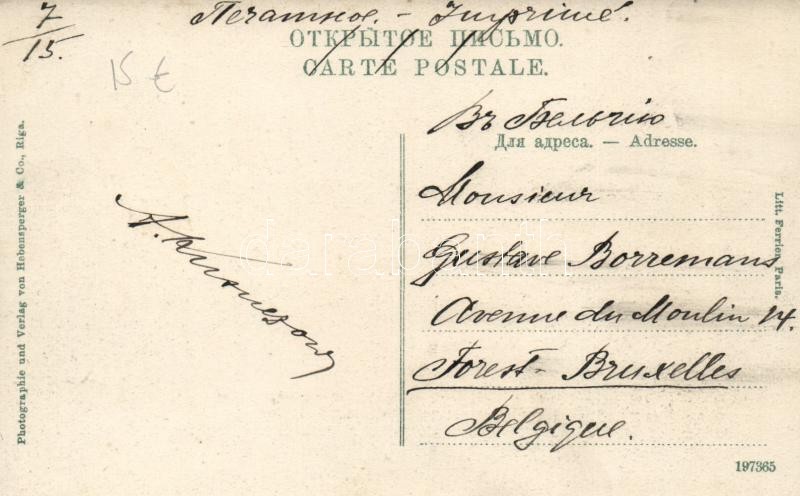 7/15.
Печатное. - Imprimé.
15 €
ОТКРЫТОЕ ПИСЬМО.
CARTE POSTALE.
Въ Бельгію
Для адреса. — Adresse.
Monsieur
Gustave Borremans
Avenue du Moulin 14.
Forest-Bruxelles
Belgique.
Photographie und Verlag von Hebensperger & Co., Riga.
Litt. Ferrien, Paris.
197365